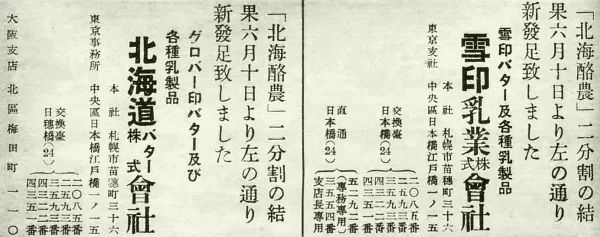 「北海酪農」二分割の結
果六月十日より左の通り
新發足致しました
雪印バター及各種乳製品
雪印乳業株式會社
本社 札幌市苗穗町三十六
東京支社 中央區日本橋江戸橋一ノ一五
交換臺
日本橋(24)
二〇八五番
二五九三番
三五九三番
四三二二番
四三五一番
直通
日本橋(24)
五二九二番
(專務專用)
三五五四番
支店長專用
「北海酪農」二分割の結
果六月十日より左の通り
新發足致しました
グロバー印バター及び
各種乳製品
北海道バター株式會社
本社 札幌市苗穗町三十六
東京事務所 中央區日本橋江戸橋一ノ一五
交換臺
日穗橋(24)
二〇八五番
二五九三番
三五九三番
四三二二番
四三五一番
大阪支店 北區梅田町一一〇